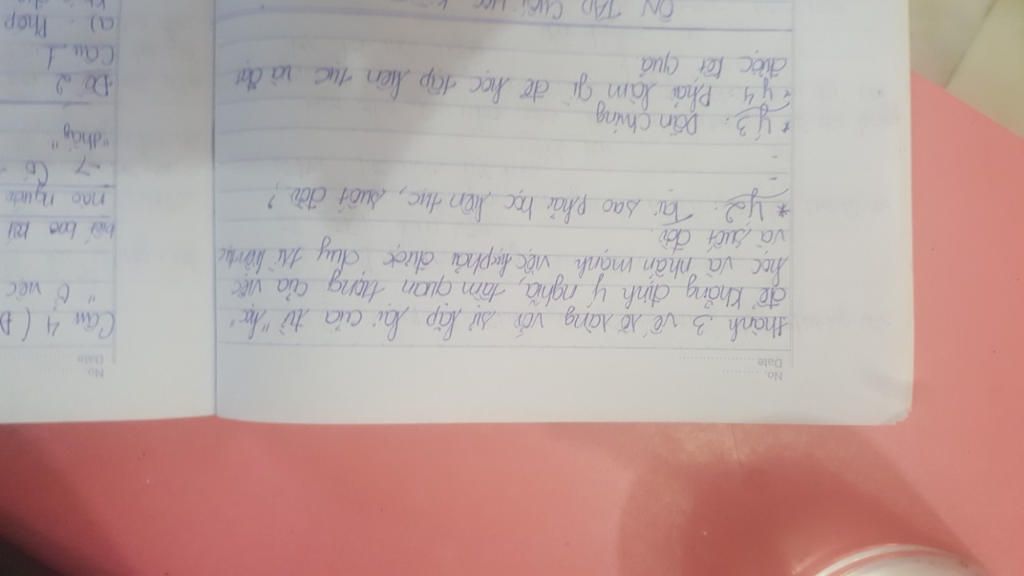 No.
Date
thành 3 vế rõ ràng với sự lặp lại của từ "học"
để khẳng định ý nghĩa, tầm quan trọng của việc
học và nhấn mạnh việc học phải được duy trì liên tục
và suốt đời.
* Ý 2: Tại sao phải học liên tục, suốt đời?
-
-
* Ý 3: Dẫn chứng
* Ý 4: Phải làm gì để học tập liên tục và đạt
được kết quả
ÔN TẬP CUỐI HỌC
No.
Date
Câu 4 (Đ
" Ở việc
nào người
→ Có
"thấy"
Đề 2
Câu 1
a) Phép